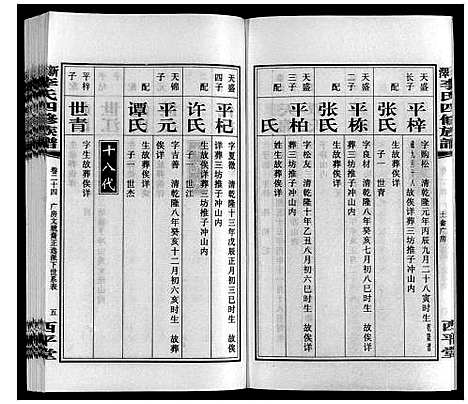 李氏四修族谱
西平堂
天盛
长子
平梓
字购松 清乾隆元年丙辰九月二十八寅时生
葬三坊推子冲山内
配
张氏
生故葬俟详
子一 世青
天盛
二子
平栋
字良材 清乾隆八年癸亥七月初八亥时生 故俟详
葬三坊推子冲山内
配
张氏
生故葬俟详
天盛
三子
平柏
字松友 清乾隆十年乙丑八月初六巳时生 故俟详
葬三坊推子冲山内
配
氏
姓生故葬俟详
天盛
四子
平杞
字夏微 清乾隆十三年戊辰正月初三巳时生 故俟
详葬三坊推子冲山内
配
许氏
生故葬俟详
子一 世江
天锦
子
平元
字吉善 清乾隆八年癸亥十二月初六亥时生 故葬
俟详
配
谭氏
生故葬俟详
子一 世杰
十八代
平梓
子
世青
字生故葬俟详
李氏四修族谱
卷二十四
五
西平堂